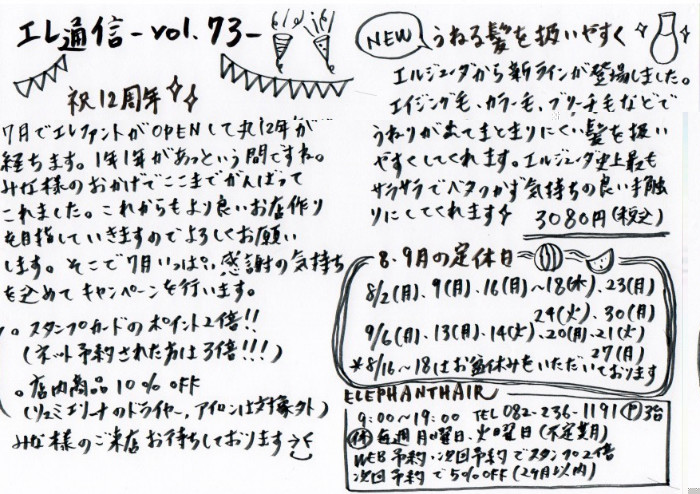 エレ通信 -vol.73-
祝12周年
7月でエレファントがOPENして丸12年が
経ちます。1年1年があっという間ですね。
みな様のおかげでここまでがんばって
これました。これからもより良いお店作り
を目指していきますのでよろしくお願い
します。そこで7月いっぱい感謝の気持ち
を込めてキャンペーンを行います。
。スタンプカードのポイント2倍!!
(ネット予約された方は3倍!!!)
。店内商品10%OFF
(リュミエリーナのドライヤー、アイロンは対象外)
みな様のご来店お待ちしております
NEW うねる髪を扱いやすく
エルジューダから新ラインが登場しました。
エイジング毛、カラー毛、ブリーチ毛などで
うねりが出てまとまりにくい髪を扱い
やすくしてくれます。エルジューダ史上最も
サラサラでベタつかず気持ちの良い手触
りにしてくれます 3080円(税込)
8、9月の定休日
8/2(月)、9(月)、16(月)~18(水)、23(月)
24(火)、30(月)
9/6(月)、13(月)、14(火)、20(月)、21(火)
27(月)
*8/16~18はお盆休みをいただいております
ELEPHANTHAIR
9:00~19:00 TEL 082-236-1191 P3台
休 毎週月曜日、火曜日(不定期)
WEB予約・次回予約でスタンプ2倍
次回予約で5%OFF(2ヶ月以内)